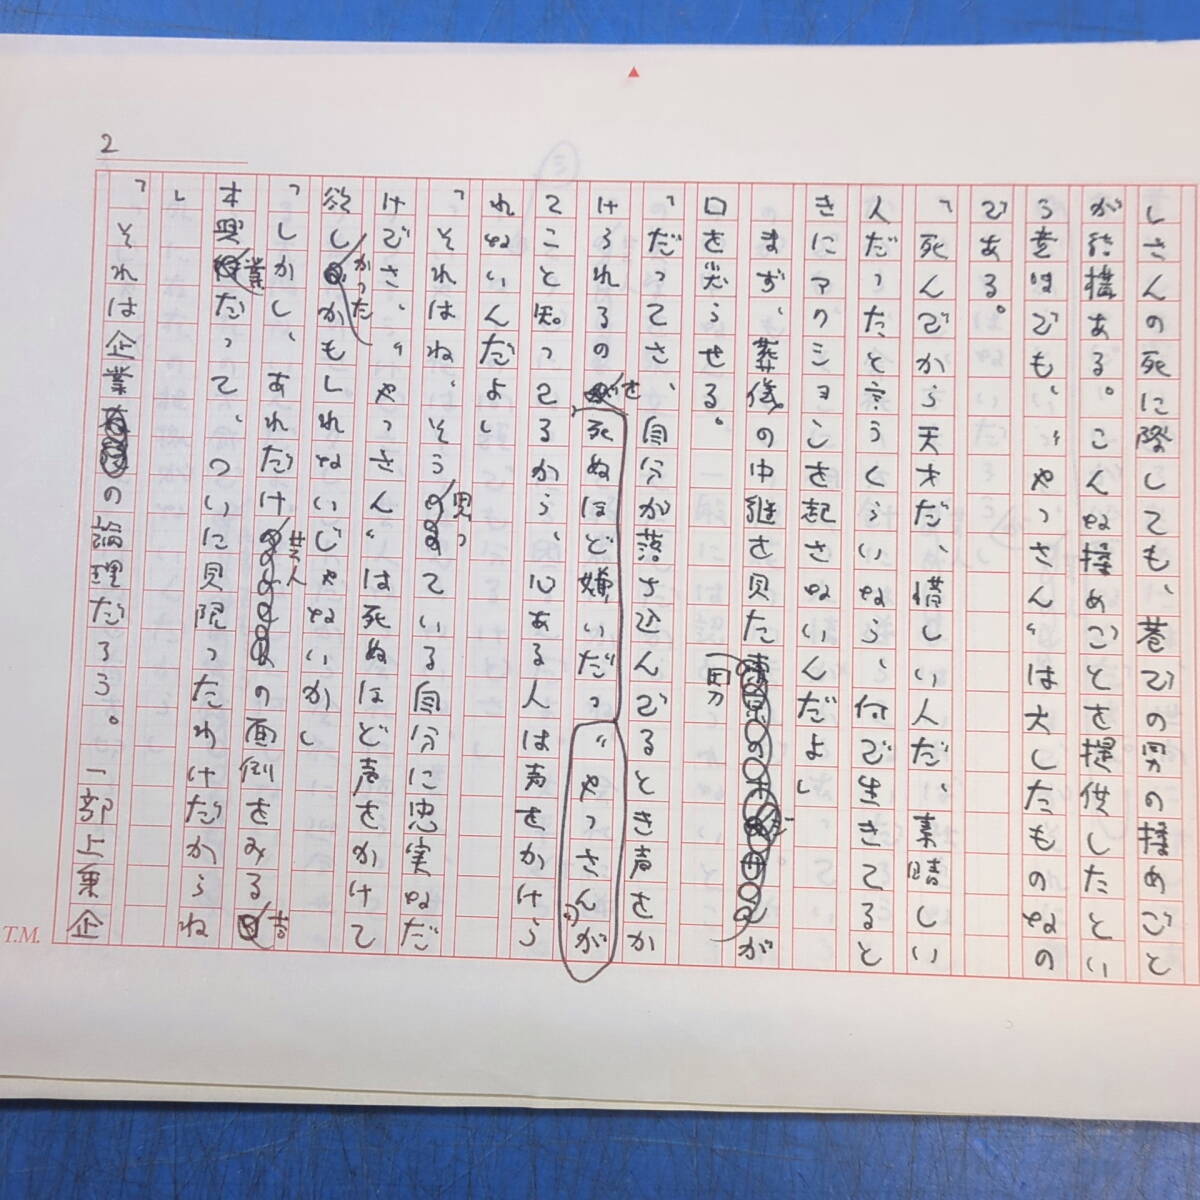 しさんの死に際しても、巷での男の揉めごと
が結構ある。こんな揉めごとを提供したとい
う意味でも、“やっさん”は大したものなの
である。
「死んでから天才だ、惜しい人だ、素晴しい
人だったと言うくらいなら、何で生きてると
きにアクションを起さないんだよ」
まず、葬儀の中継を見た男が
口を尖らせる。
「だってさ、自分が落ち込んでるとき声をか
けられるのを死ぬほど嫌いだっ“やっさんが
てこと知ってるから、心ある人は声をかけら
れないんだよ」
「それはね、そう思っている自分に忠実なだ
けでさ、“やっさん”は死ぬほど声をかけて
欲しかったかもしれないじゃないか」
「しかし、あれだけ芸人の面倒をみる吉
本興業だって、ついに見限ったわけだからね
」
「それは企業の論理だろう。一部上場企
2
T.M.